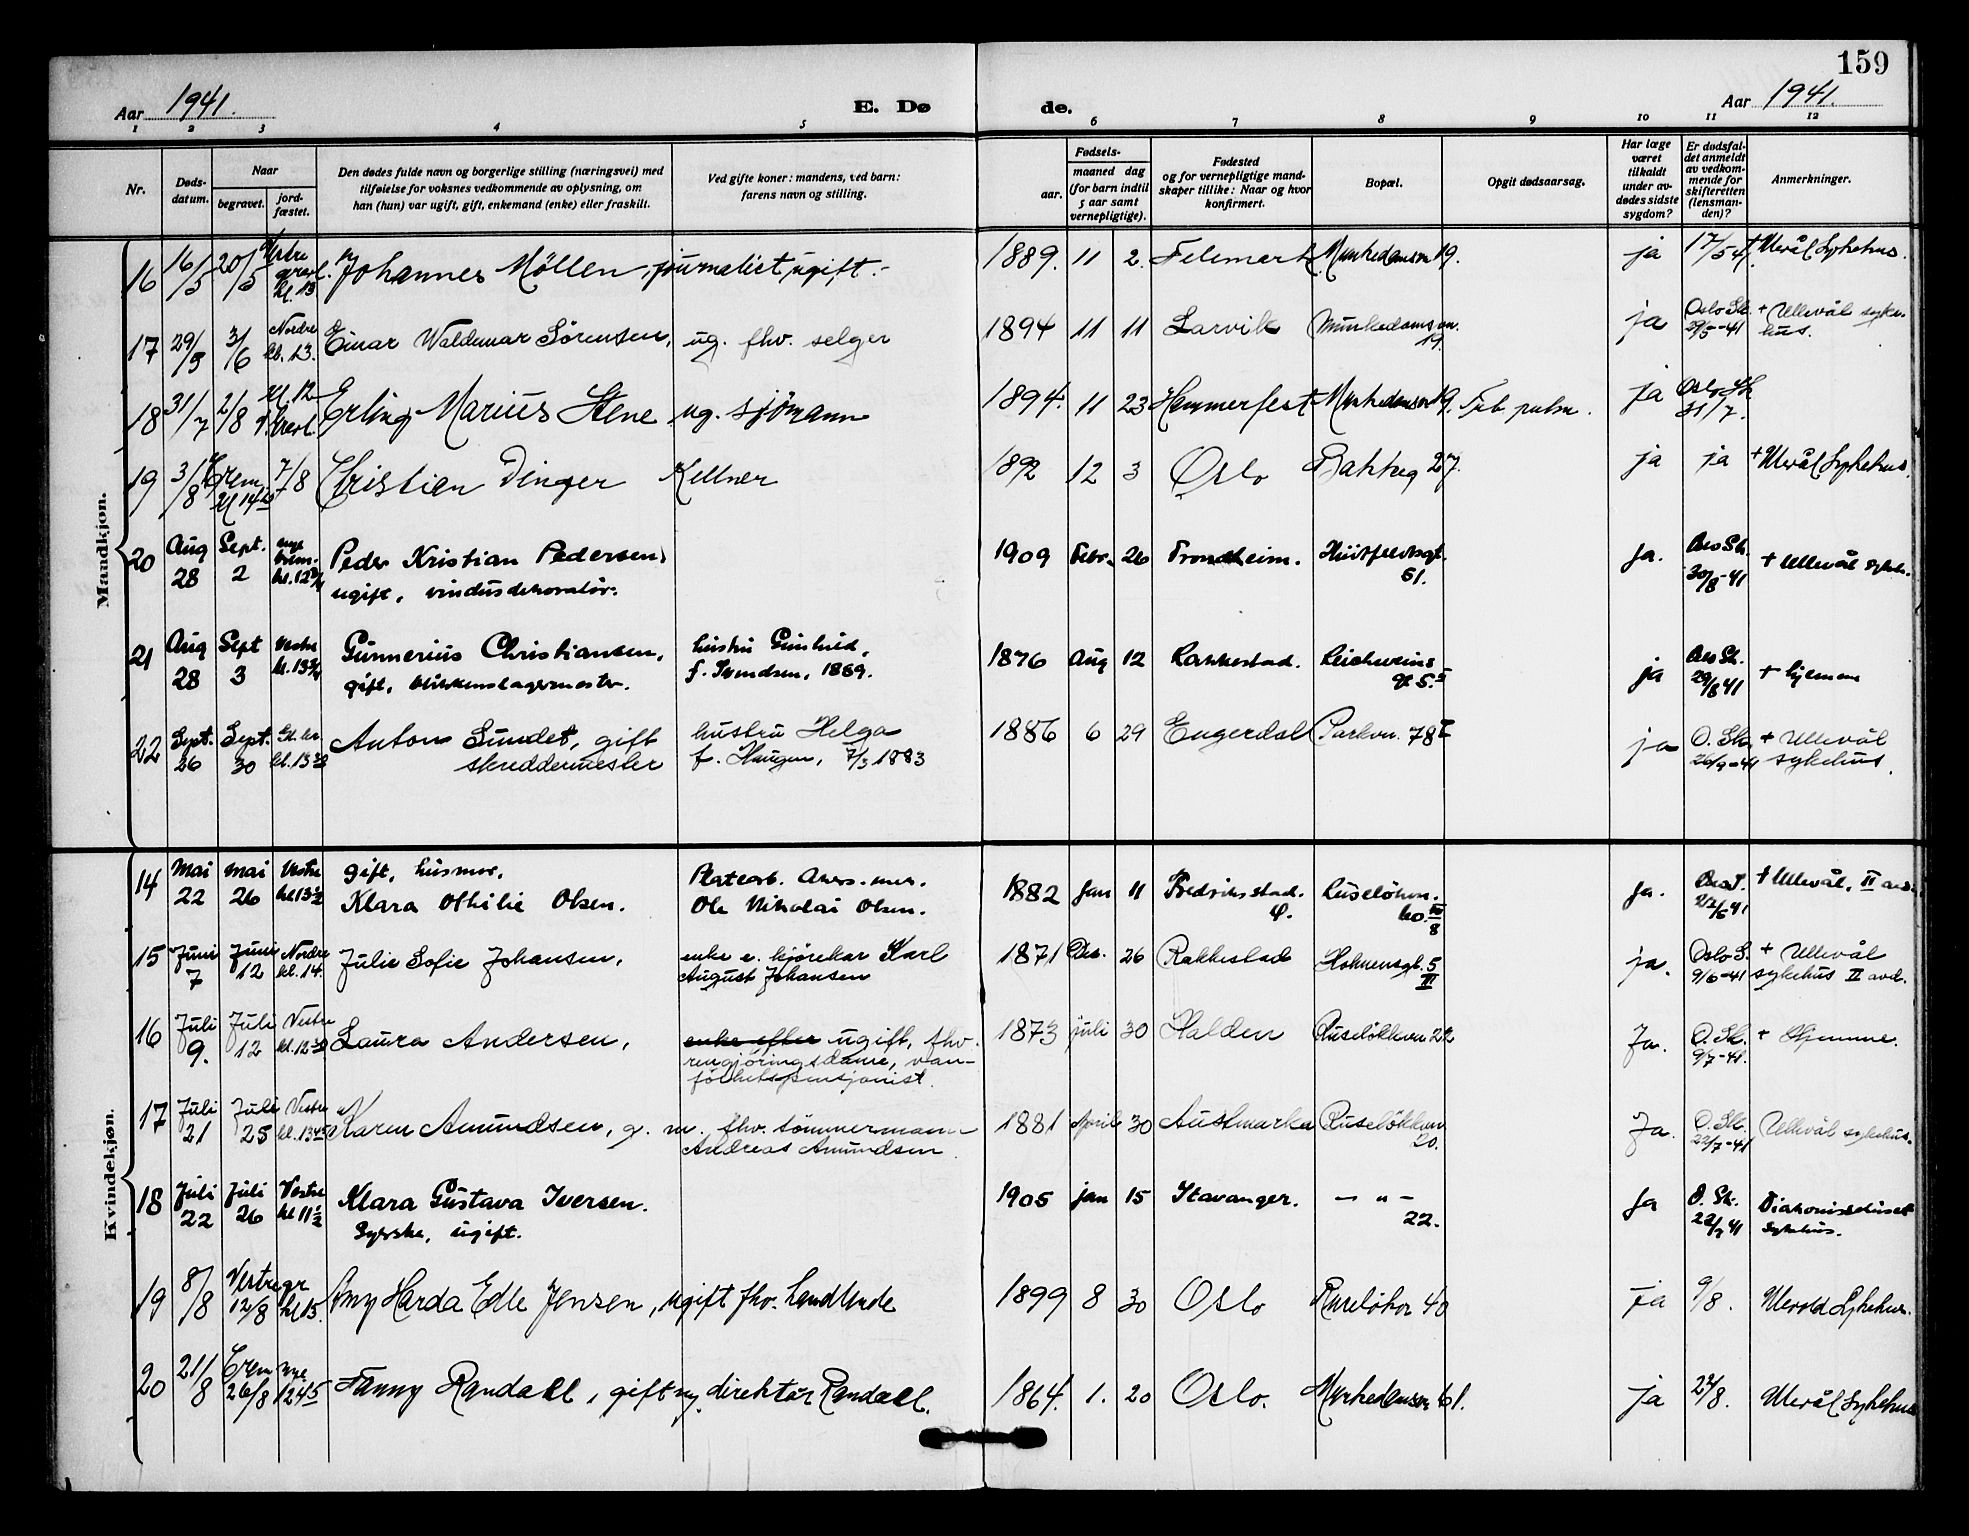 159
Aar 1941.
E. Dø
de.
Aar 1941.
1 2 3 4 5 6 7 8 9 10 11 12
Nr.
Døds-
datum.
Naar
begravet.
jord-
fæstet.
Den dødes fulde navn og borgerlige stilling (næringsvei) med
tilføielse for voksnes vedkommende av oplysning, om
han (hun) var ugift, gift, enkemand (enke) eller fraskilt.
Ved gifte koner: mandens, ved barn:
farens navn og stilling.
Fødsels-
aar.
maaned dag
(for barn indtil
5 aar samt
vernepligtige).
Fødested
og for vernepligtige mand-
skaper tillike: Naar og hvor
konfirmert.
Bopæl.
Opgit dødsaarsag.
Har læge
været
tilkaldt
under av-
dødes sidste
sygdom?
Er dødsfal-
det anmeldt
av vedkom-
mende for
skifteretten
(lensman-
den)?
Anmerkninger.
Mandkjøn.
16 16/5 20/5 Vestre gravl. kl. 13 Johannes Möllen, journalist, ugift. 1889. 11 2. Telemark Munkedamsvn 19. ja 17/5 41. + Ulevål Sykehus.
17 29/5 3/6 Nordre kl. 13. Einar Waldemar Sörensen, ug. fhv. selger 1894 11 11 Larvik Munkedamsvn. 19. ja Oslo Sk. 29/5-41 + Ullevål syke-
hus.
18 31/7 2/8 kl. 12 Erling Marius Stene ug. sjömann 1894. 11 23 Hammerfest Munkedamsvn 19. Tub. pulm. ja Oslo Sk 31/7.
19 3/8 Crem. kl 14 7/8 Christian Dinger Kellner 1892 12 3 Oslo Bakkeg 27. ja ja + Ulevål Sykehus.
20 Aug 28 Sept. 2 nye krem. kl. 12 3/4 Peder Kristian Pedersen,
ugift, vindusdekoratör. 1909 Febr. 26 Trondheim. Huitfeldtsgt. 51. ja. Oslo Sk. 30/8-41 + Ullevål sykeh.
21 Aug 28 Sept 3 Vestre kl. 13 3/4 Gunnerius Christiansen,
gift, blikkenslagermestr. hustru Gunhild,
f. Svendsen, 1869. 1876 Aug 12 Rakkestad. Reichweins gt 5. ja Oslo Sk. 29/8 41 + hjemme
22 Sept. 26 Sept. 30 kl. 13 Anton Sundet, gift
skreddermester hustru Helga
f. Haugen, 7/3 1883 1886 6 29 Engerdal Parkvn. 78 ja O. Sk. 26/9-41 + Ullevål
sykehus.
Kvindekjøn.
14 Mai 22 mai 26 Vestre kl 13 1/2 gift, husmor,
Klara Othilie Olsen. Platearb. Akers. mek.
Ole Nikolai Olsen. 1882 jan 11 Fredriksstad. Ruselökvn. 60. III 8 ja. + Ullevål, III avd.
15 Juni 7 Juni 12 Nordre kl. 14. Julie Sofie Johansen, enke e. kjörekar Karl
August Johansen 1871 Des. 26 Rakkestad Holmensgt. 5 III ja. Oslo S. 9/6-41 + Ullevål
sykehus II avd.
16 Juli 9. Juli 12 Vestre kl. 12 Laura Andersen, enke efter ugift, fhv.
rengjöringsdame, van-
förhetspensjonist. 1873 juli 30 Halden Ruselökkvn 22 Ja. O. Sk. 9/7-41. + Hjemme.
17 Juli 21 Juli 25 Vestre kl. 13 45 Karen Amundsen, g. m. fhv. tömmermann
Andreas Amundsen. 1881 April 30 Austmarka Ruselökkvn 20. Ja. O. Sk. 22/7-41 Ullevål sykehus.
18 Juli 22 Juli 26 Vestre kl 11 1/2 Klara Gustava Iversen.
Syerske, ugift. 1905 jan 15 Stavanger. — " — 22. Ja O. Sk. 22/7 41 Diakonissehuset
sykehus.
19 8/8 Vestre gr 12/8 kl 15. Amy Harda Edle Jensen, ugift fhv. handlende 1899 8 30 Oslo Ruselökvn 40 ja 9/8. Ulevold Sykehus.
20 21/8 Crem nye 26/8 1245 Fanny Randall, gift m. direktör Randall. 1864. 1. 20 Oslo. Munkedamsvn 61. ja 22/8. Ulevål Sykehus